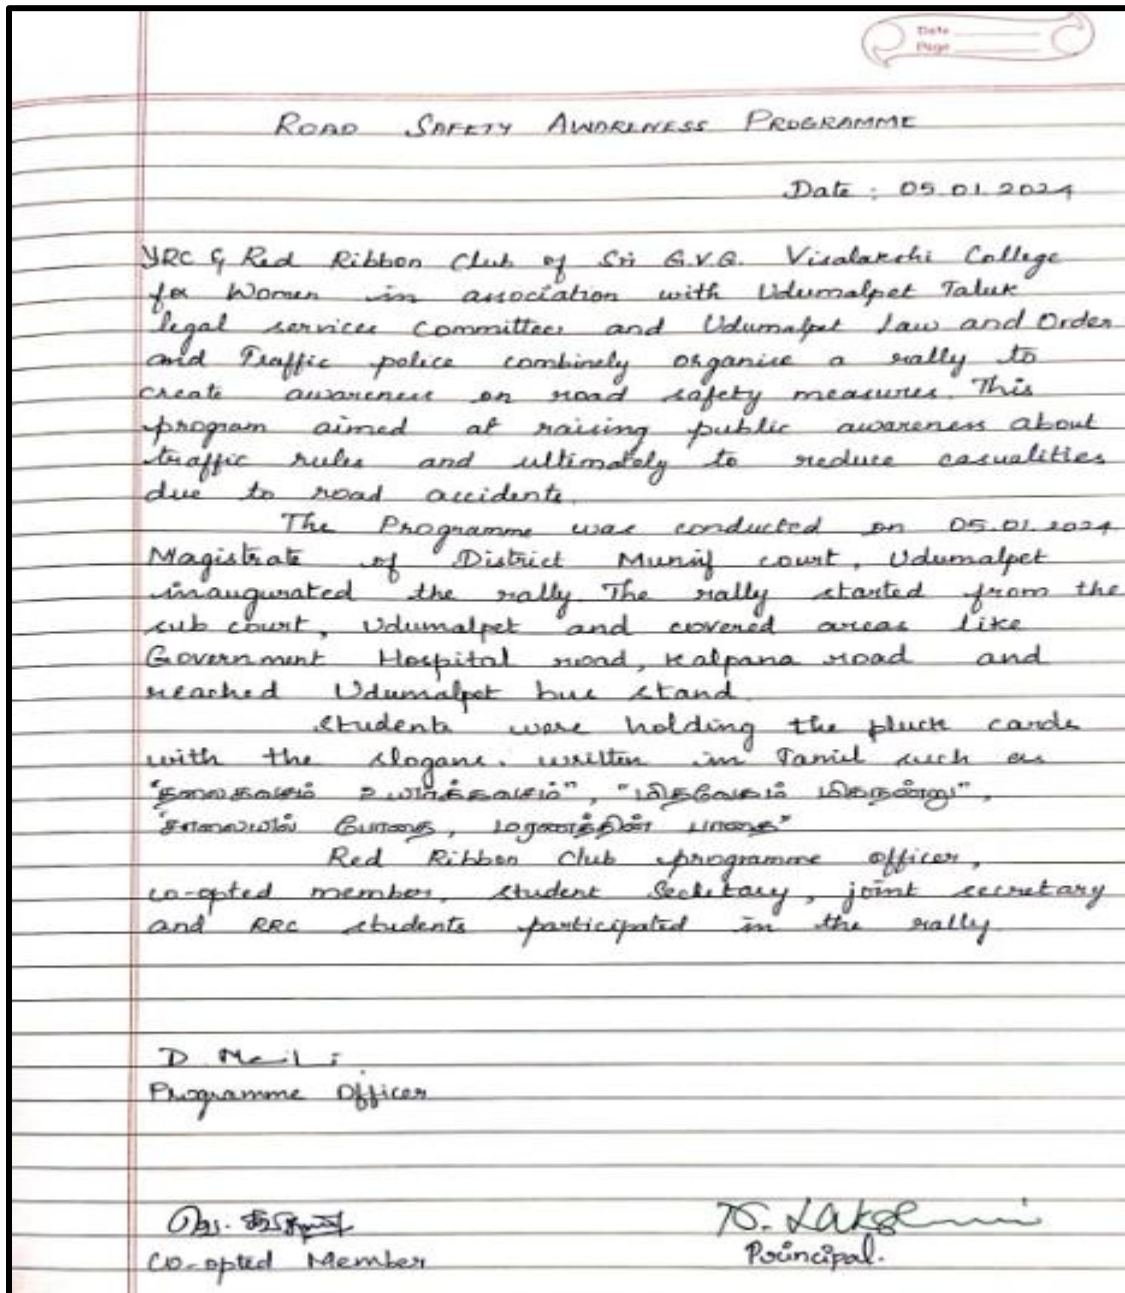 Date
Page
ROAD SAFETY AWARENESS PROGRAMME
Date : 05.01.2024
YRC & Red Ribbon Club of Sri G.V.G. Visalakshi College
for Women in association with Udumalpet Taluk
legal services committee and Udumalpet Law and Order
and Traffic police combinely organise a rally to
create awareness on road safety measures. This
program aimed at raising public awareness about
traffic rules and ultimately to reduce casualities
due to road accidents.
The Programme was conducted on 05.01.2024
Magistrate of District Munsif court, Udumalpet
inaugurated the rally. The rally started from the
sub court, Udumalpet and covered areas like
Government Hospital road, Kalpana road and
reached Udumalpet bus stand.
Students were holding the pluck cards
with the slogans. written in Tamil such as
"தலைகவசம் உயிர்க்கவசம்", "மிதவேகம் மிகநன்று",
"சாலையில் போதை, மரணத்தின் பாதை"
Red Ribbon Club programme officer,
co-opted member, student Secretary, joint secretary
and RRC students participated in the rally
Programme Officer
Co-opted Member
Principal.